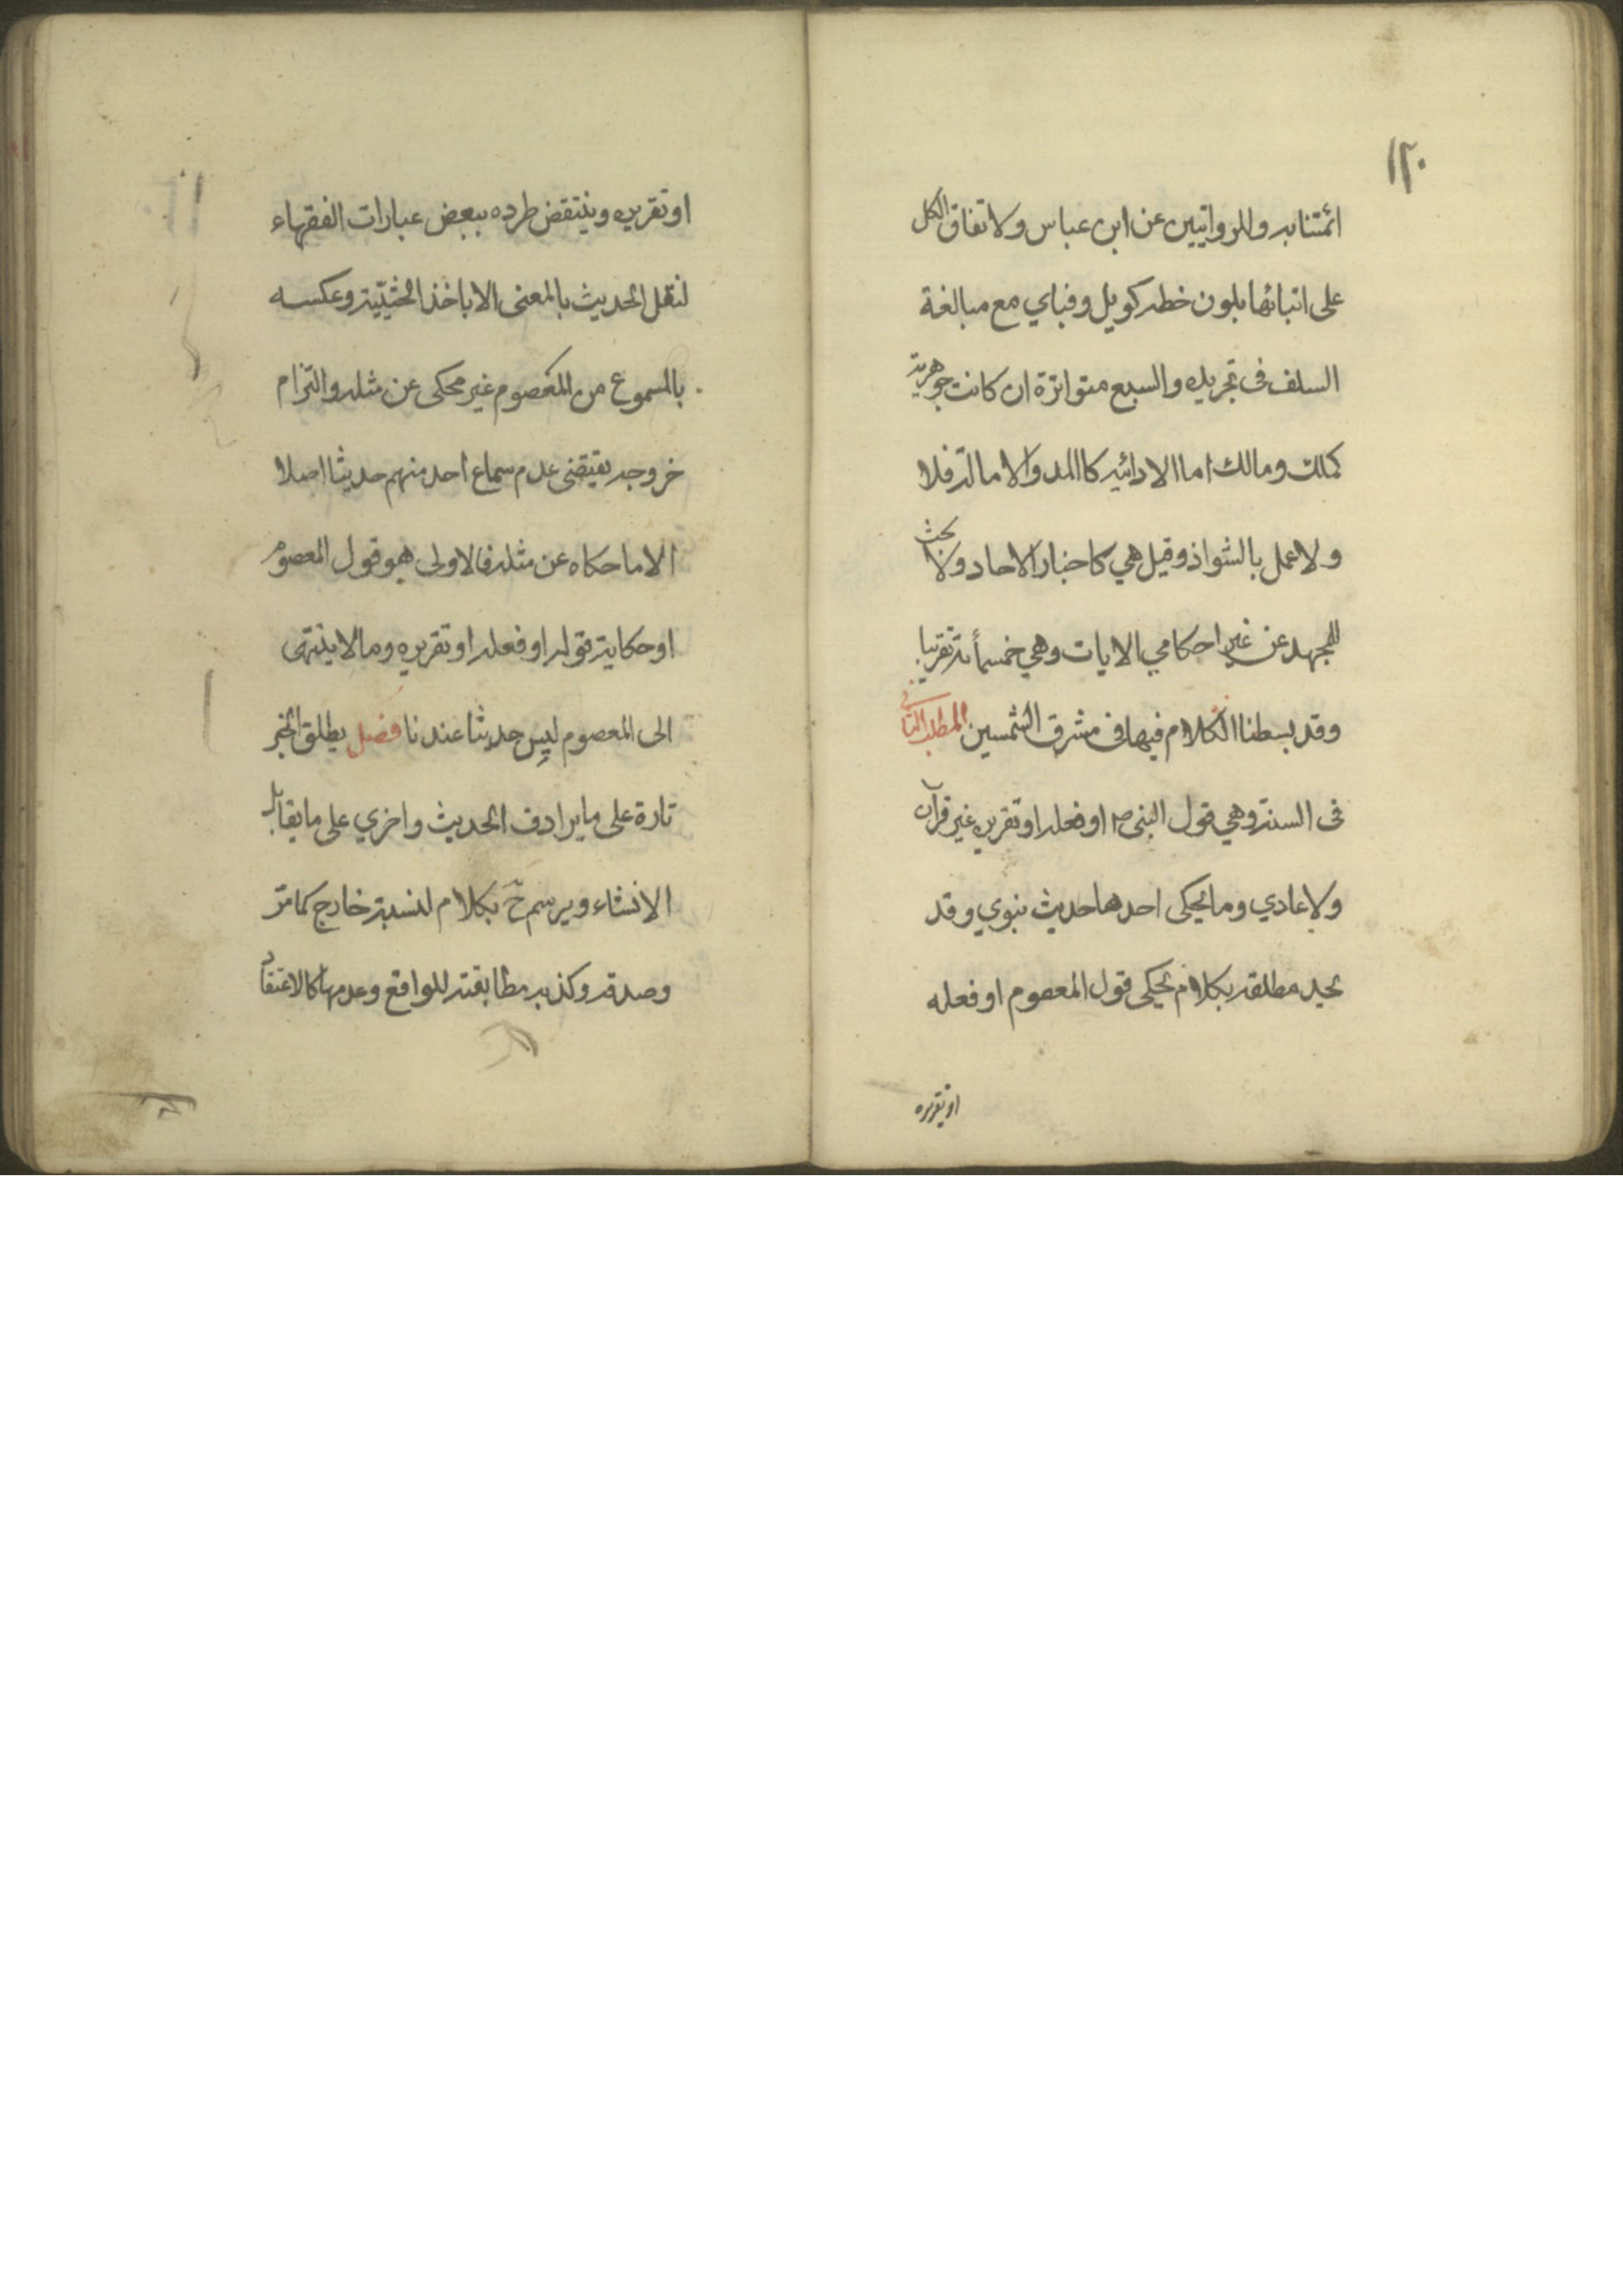 ١٢٠
ائمتنا به وللروايتين عن ابن عباس ولاتفاق الكل
على اثباتها بلون خطه كويل وفباي مع مبالغة
السلف فى تجريده والسبع متواترة ان كانت جوهرية
كملك ومالك اما الادائيه كاالمد والامالة فلا
ولا عمل بالشواذ وقيل هي كاخبار الاحاد ولا بحث
للمجتهد عن غير احكامي الايات وهي خمسمأئة تقريبا
وقد بسطنا الكلام فيها فى مشرق الشمسين المطلب الثانى
فى السنة وهي قول النبى ص او فعله او تقريره غير قرآن
ولا عادي وما يحكى احدها حديث نبوي وقد
يحد مطلقه بكلام يحكى قول المعصوم او فعله
او تقريره
او تقريره وينتقض طرده ببعض عبارات الفقهاء
لنقل الحديث بالمعنى الا باخذ الحيثيّية وعكسه
بالمسموع من المعصوم غير محكى عن مثله والتزام
خروجه يقتضى عدم سماع احد منهم حديثا اصلا
الا ما حكاه عن مثله فالاولى هو قول المعصوم
او حكاية قوله او فعله او تقريره وما لا ينتهى
الى المعصوم ليس حديثا عندنا فصل يطلق الخبر
تارة على ما يرادف الحديث واخري على ما يقابل
الانشاء ويرسم ح بكلام لنسبته خارج كما مرّ
وصدقه وكذبه مطابقته للواقع وعدمها كالاعتقاد